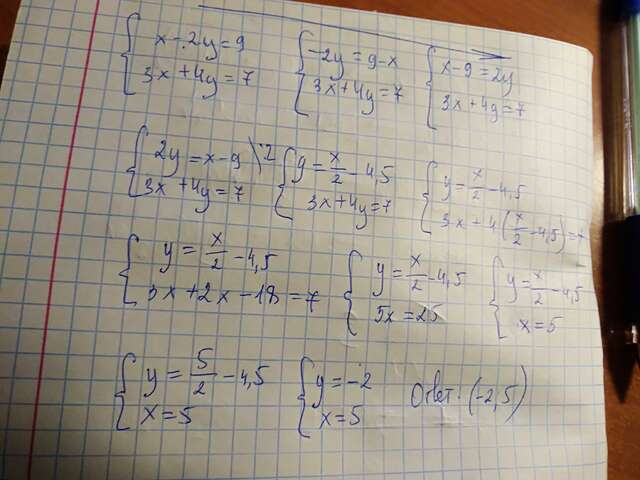 { x - 2y = 9   3x + 4y = 7   { -2y = 9 - x   3x + 4y = 7   { x - 9 = 2y   3x + 4y = 7
{ 2y = x - 9 | :2   3x + 4y = 7   { y = x/2 - 4,5   3x + 4y = 7   { y = x/2 - 4,5   3x + 4(x/2 - 4,5) = 7
{ y = x/2 - 4,5   3x + 2x - 18 = 7   { y = x/2 - 4,5   5x = 25   { y = x/2 - 4,5   x = 5
{ y = 5/2 - 4,5   x = 5   { y = -2   x = 5   Ответ: (-2,5)